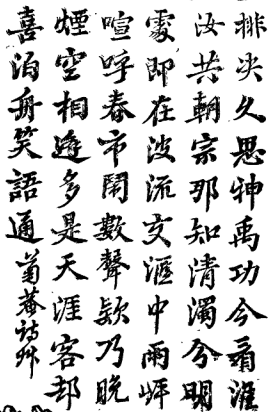 排决久思神禹功今看淮
汝共朝宗那知清濁分明
處即在波流交滙中兩岸
喧呼春市鬧數聲欸乃晚
煙空相逢多是天涯客却
喜泊舟笑語通菊菴詩艸